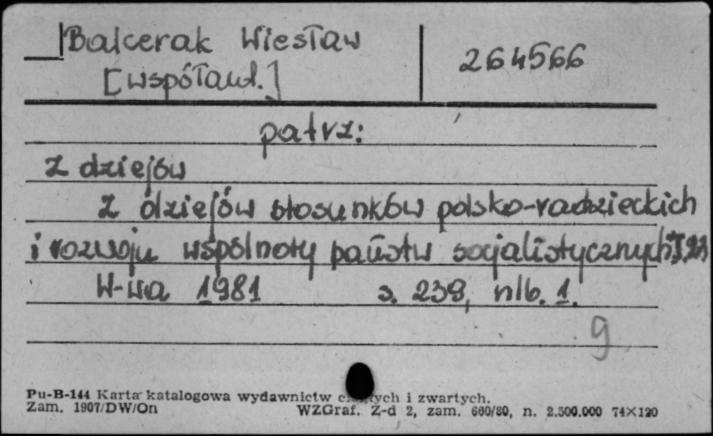 Balcerak Wiesław
[współaut.]
264566
patrz:
Z dziejów
Z dziejów stosunków polsko-radzieckich
i rozwoju wspólnoty państw socjalistycznych T.23
W-wa 1981 s. 238, nlb. 1.
9
Pu-B-144 Karta katalogowa wydawnictw ciągłych i zwartych.
Zam. 1907/DW/On WZGraf. Z-d 2, zam. 660/80, n. 2.500.000 74×120